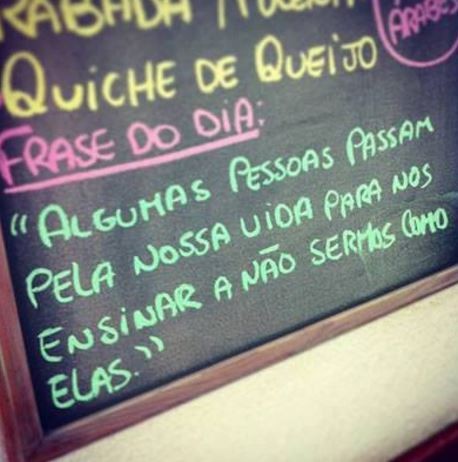 RABADA / POLENTA
ÁRABES
QUICHE DE QUEIJO
FRASE DO DIA:
"ALGUMAS PESSOAS PASSAM
PELA NOSSA VIDA PARA NOS
ENSINAR A NÃO SERMOS COMO
ELAS."